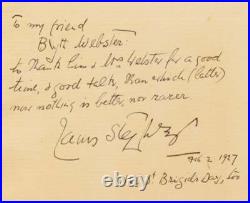 To my friend
Bytt Webster:
to thank him & Mrs Webster for a good
time, & good talk, than which (latter)
now nothing is better, nor rarer
James Stephens
Feb 2 1927
St Brigids Day, too